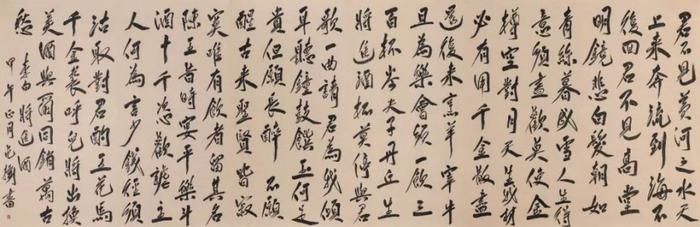 君不見黃河之水天
上来奔流到海不
復回君不見高堂
明鏡悲白髮朝如
青絲暮成雪人生得
意須盡歡莫使金
樽空對月天生我材
必有用千金散盡
還復來烹羊宰牛
且為樂會須一飲三
百杯岑夫子丹丘生
將進酒杯莫停與君
歌一曲請君為我傾
耳聽鐘鼓饌玉何足
貴但願長醉不願
醒古来聖賢皆寂
寞唯有飲者留其名
陳王昔時宴平樂斗
酒十千恣歡謔主
人何為言少錢徑須
沽取對君酌五花馬
千金裘呼兒將出換
美酒與爾同銷萬古
愁
李白將進酒
甲午正月 書